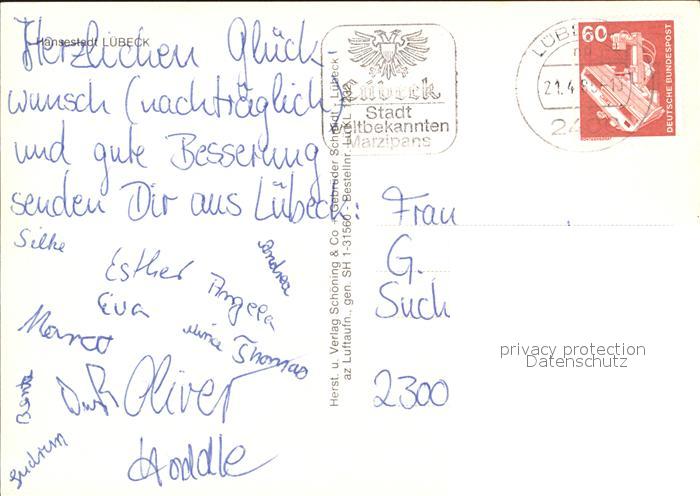 Hansestadt LÜBECK
Herzlichen Glück-
wunsch (nachträglich)
und gute Besserung
senden Dir aus Lübeck:
Silke
Esther
Andrea
Eva
Angela
Marco
Thomas
Oliver
Gudrun
Herst. u. Verlag Schöning & Co + Gebrüder Schmidt - Lübeck
az Luftaufn., gen. SH 1-31560 - Bestellnr. Lü KL
Lübeck
Stadt
weltbekannten
Marzipans
LÜBE
21.4.8
60
DEUTSCHE BUNDESPOST
Frau
G.
Such
2300
privacy protection
Datenschutz